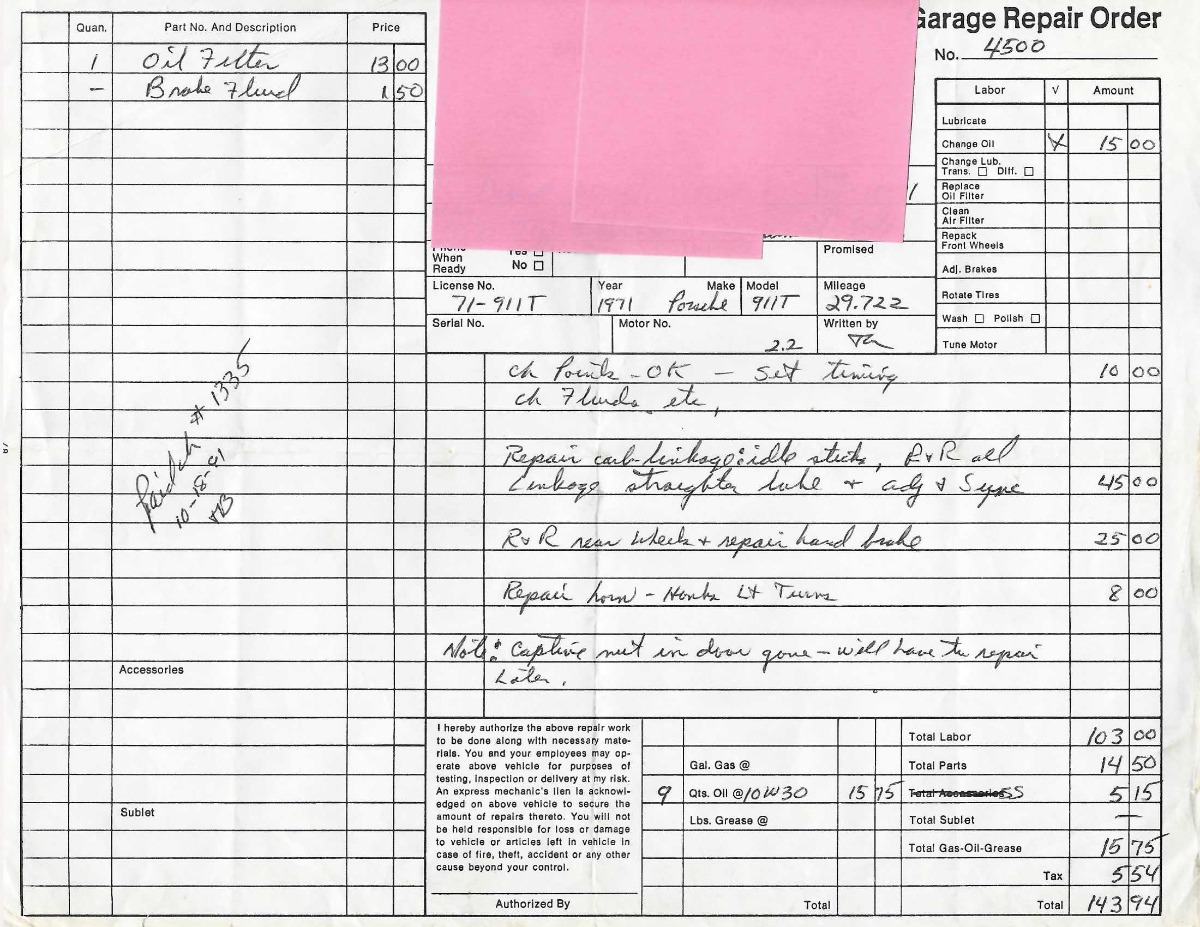 Quan. Part No. And Description Price
1 Oil Filter 13 00
— Brake Fluid 1 50
Paid ch # 1335
10-18-91
Accessories
Sublet
Garage Repair Order
No. 4500
Labor √ Amount
Lubricate
Change Oil X 15 00
Change Lub.
Trans. ☐ Diff. ☐
Replace
Oil Filter
Clean
Air Filter
Repack
Front Wheels
Adj. Brakes
Rotate Tires
Wash ☐ Polish ☐
Tune Motor
Phone
When
Ready
Yes ☐
No ☐
Promised
License No. Year Make Model Mileage
71-911T 1971 Porsche 911T 29.722
Serial No. Motor No. Written by
2.2
ch Points - OK - Set timing 10 00
ch Fluids etc,
Repair carb-linkage: idle sticks, R&R all
Linkage straighten lube + adj & Sync 45 00
R&R rear wheels + repair hand brake 25 00
Repair horn - Honks Lt Turns 8 00
Note: Captive nut in door gone - will have to repair
Later.
I hereby authorize the above repair work
to be done along with necessary mate-
rials. You and your employees may op-
erate above vehicle for purposes of
testing, inspection or delivery at my risk.
An express mechanic's lien is acknowl-
edged on above vehicle to secure the
amount of repairs thereto. You will not
be held responsible for loss or damage
to vehicle or articles left in vehicle in
case of fire, theft, accident or any other
cause beyond your control.
Authorized By
Gal. Gas @
9 Qts. Oil @ 10W30 15 75
Lbs. Grease @
Total
Total Labor 103 00
Total Parts 14 50
Total Accessories SS 5 15
Total Sublet —
Total Gas-Oil-Grease 15 75
Tax 5 54
Total 143 94